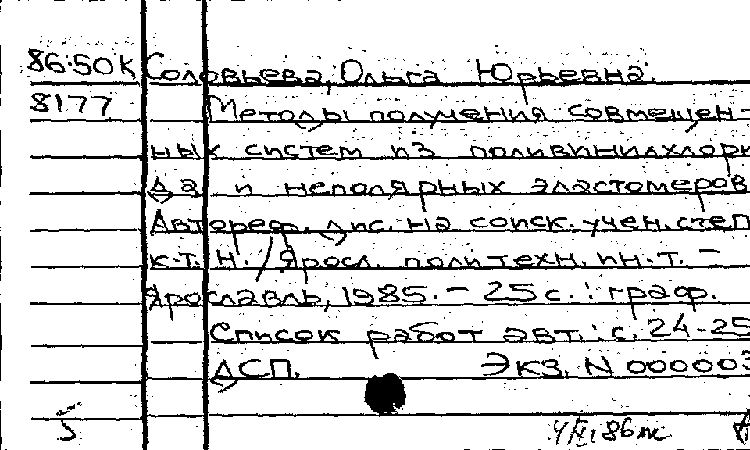 86-50К Соловьева, Ольга Юрьевна.
8177 Методы получения совмещен-
ных систем из поливинилхлори
да и неполярных эластомеров
Автореф. дис. на соиск. учен. степ
к.т.н. / Яросл. политехн. ин-т. -
Ярославль, 1985. - 25 с. : граф.
Список работ авт.: с. 24-25
ДСП. Экз. N 000003
5